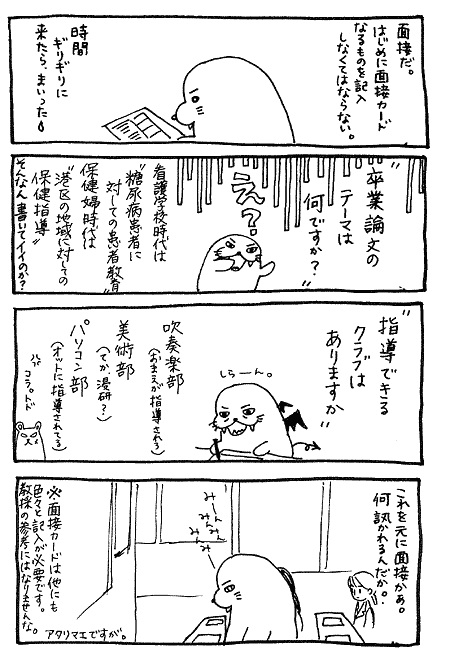 面接だ。
はじめに面接カード
なるものを記入
しなくてはならない。
時間
ギリギリに
来たら、まいった
"卒業論文の
テーマは
何ですか？"
え？
看護学校時代は
"糖尿病患者に
対しての患者教育"
保健婦時代は
"港区の地域に対しての
保健指導"
そんなん書いてイイのか？
"指導できる
クラブは
ありますか"
しらーん。
吹奏楽部
(おまえが指導される)
美術部
(てか、漫研？)
パソコン部
(オットに指導されてる)
コラコラ
これを元に面接かぁ。
何訊かれるんだか。
みーん
みんみん
みんみ
※面接カードは他にも
色々と記入が必要です。
教採の参考にはなりませんな。
アタリマエですが。